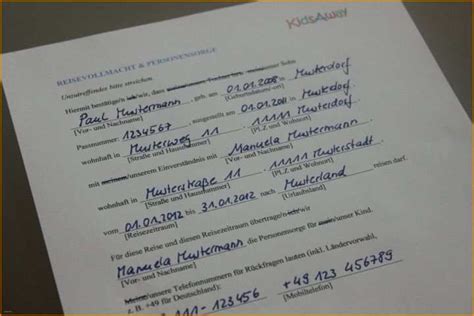 KidsAway
REISEVOLLMACHT & PERSONENSORGE
Unzutreffendes bitte streichen.
Hiermit bestätige/n ich/wir, dass meine/unsere Tochter bzw. mein/unser Sohn
Paul Mustermann, geb. am 01.01.2008 in Musterdorf
[Vor- und Nachname] [Geburtsdatum/-ort]
Passnummer 1234567 ausgestellt am 01.01.2011 in Musterdorf
wohnhaft in Musterweg 11 11111 Musterdorf
[Straße und Hausnummer] [PLZ und Wohnort]
mit meinem/unserem Einverständnis mit Manuela Mustermann
[Vor- und Nachname]
wohnhaft in Musterstraße 11 11111 Musterstadt
[Straße und Hausnummer] [PLZ und Wohnort]
vom 01.01.2012 bis 31.01.2012 nach Musterland reisen darf.
[Reisezeitraum] [Urlaubsland]
Für diese Reise und diesen Reisezeitraum übertrage/n ich/wir
Manuela Mustermann die Personensorge für unser Kind.
[Vor- und Nachname]
Meine/unsere Telefonnummern für Rückfragen lauten (inkl. Ländervorwahl,
z. B. +49 für Deutschland): +49 123 456789
11-123456 [Mobiltelefon]